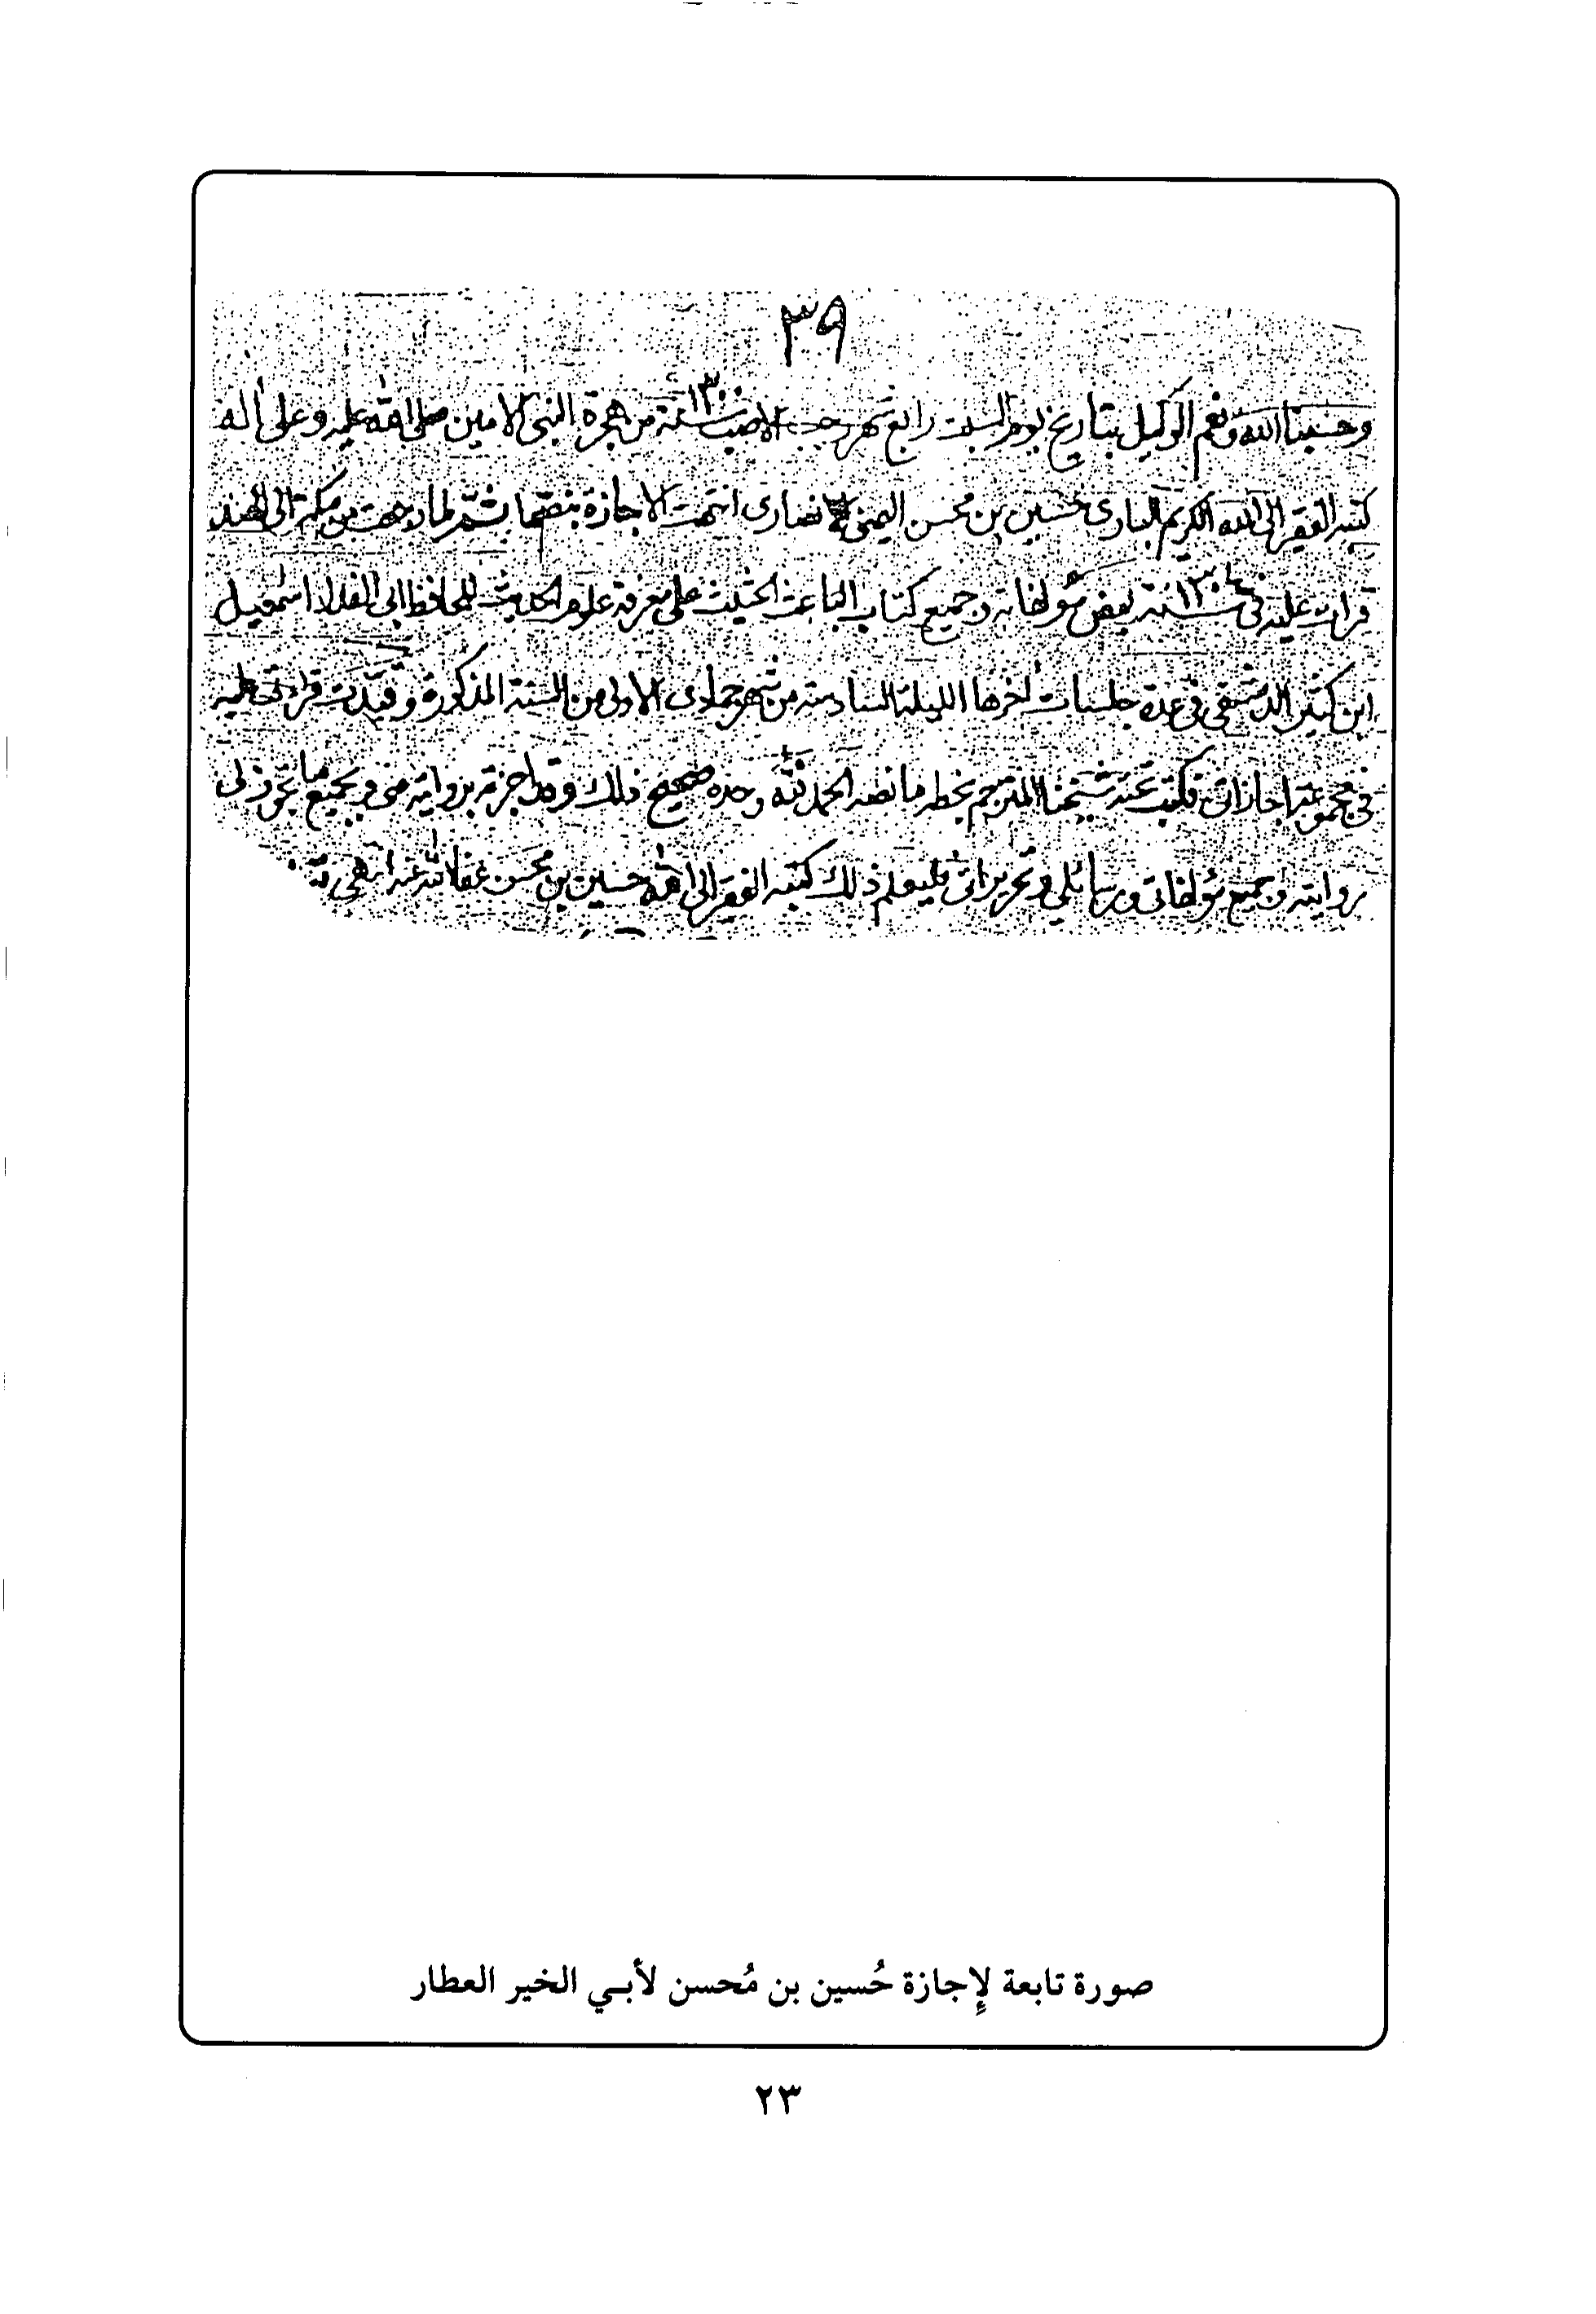 ٣٩
وحسبنا الله ونعم الوكيل بتاريخ يوم السبت رابع شهر رجب الاصب سنة ١٣٠٠ من هجرة النبي الامين صلى الله عليه وعلى اله
كتبه الفقير الى الله الكريم البارى حسين بن محسن اليمنى الانصارى انتهت الاجازة بنصها ثم لما توجهت من مكة الى الهند
قرات عليه فى سنة بعض مؤلفاته وجميع كتاب الباعث الحثيث على معرفة علوم الحديث للحافظ ابى الفداء اسمعيل
ابن كثير الدمشقى فى عدة جلسات اخرها الليلة السادسة من شهر جمادى الاولى من السنة المذكورة وقيدت قراءتى عليه
فى مجموعة اجازاتى فكتب شيخنا المترجم بخطه ما نصه الحمد لله وحده صحيح ذلك وقد اجزته بروايته عنى وبجميع ما تجوز لى
روايته وجميع مؤلفاتى ورسائلي وتحريراتى فليعلم ذلك كتبه الفقير الى الله حسين بن محسن عفا الله عنه انتهى
صورة تابعة لإجازة حُسين بن مُحسن لأبي الخير العطار
٢٣